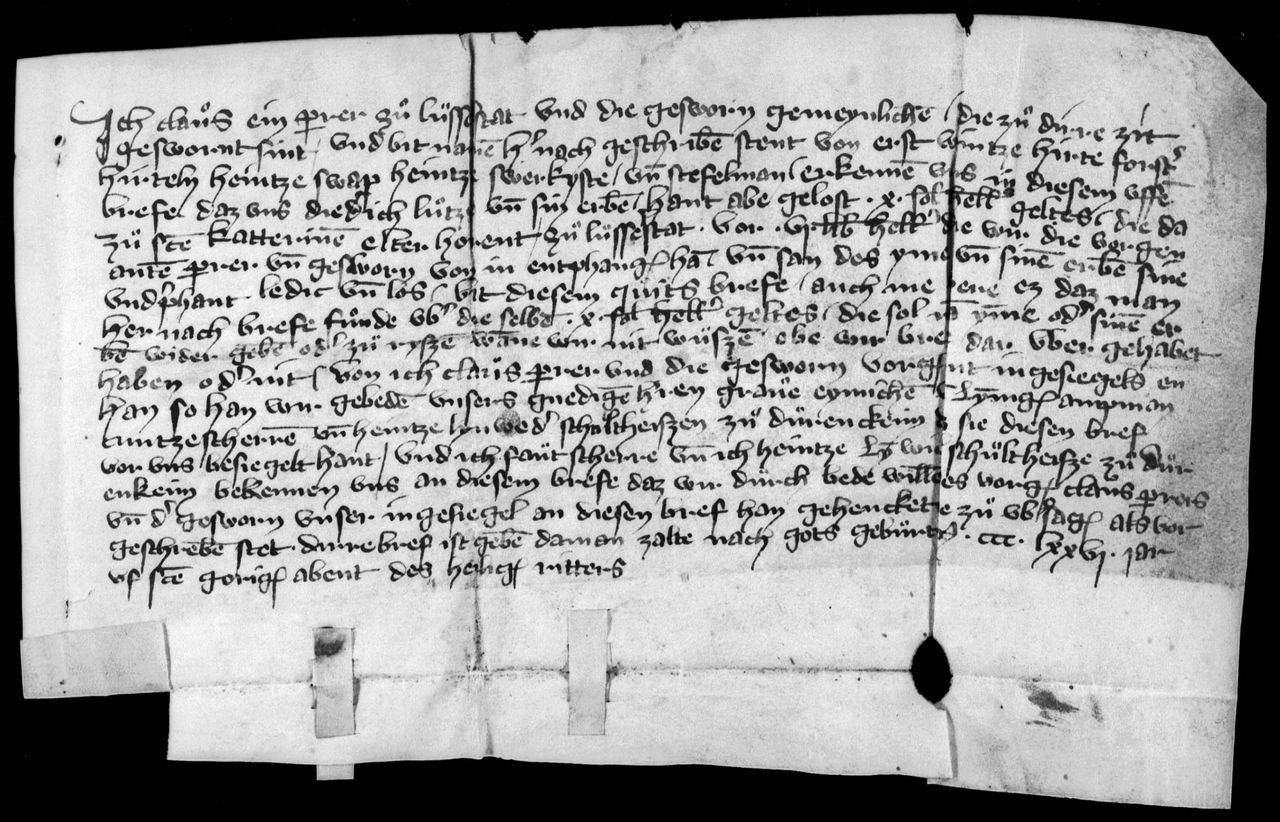 Ich claůs ein prrer zů lüssestat vnd die gesworn gemeynlichē die zů dirre zit
geswornt sint vnd bit namē hˀ nach geschribē stent von erst wintze hirte forstˀ
hirteln heintze swap heintze swerkyste vn̄ stefelman erkennē vns in diesem vffē
brefe daz vns diederich lutze vn̄ sin erbē hant abe gelost · x · sol hellˀ geltes die da
zů sctē katterinē elter horent zů lüssestat · vor · vj lib hellˀ die wir die vorgen
antē prrer vn̄ gesworn von in entphangē hā vn̄ san des yme vn̄ sinē erbē sine
vndˀphant ledic vn̄ los bit diesem quits brefe auch me were ez daz man
her nach brefe funde vbˀ die selbē · x · sol hellˀ geltes die sol yme odˀ sinē er
bē wider gebē odˀ zu ryszē wāne wir nit wüszē obe wir bre dar vber gehabet
haben odˀ nit von ich claůs prrer vnd die gesworn vorgant ingesiegels en
han so han wir gebedē vnsers gnedigē hˀren graůe eymichē lyningē amptman
cuntze scherrē vn̄ heintze schultheiszen zů dürenckeim sie diesen bref
vor vns besiegelt hant vnd ich scherre vn̄ ich heintze schültheisze zů dür
enkeim bekennen vns an diesem brefe daz wir důrch bede willē des vorgē claůs prrers
vn̄ dˀ gesworn vnser ingesiegel an diesen bref han gehencket zů vbˀsagē als vor
geschrebē stet · dirre bref ist gebē da man zalte nach gots gebürte · ccc · lxxvj · jar
vf sctē gorigē abent des heilgē ritters